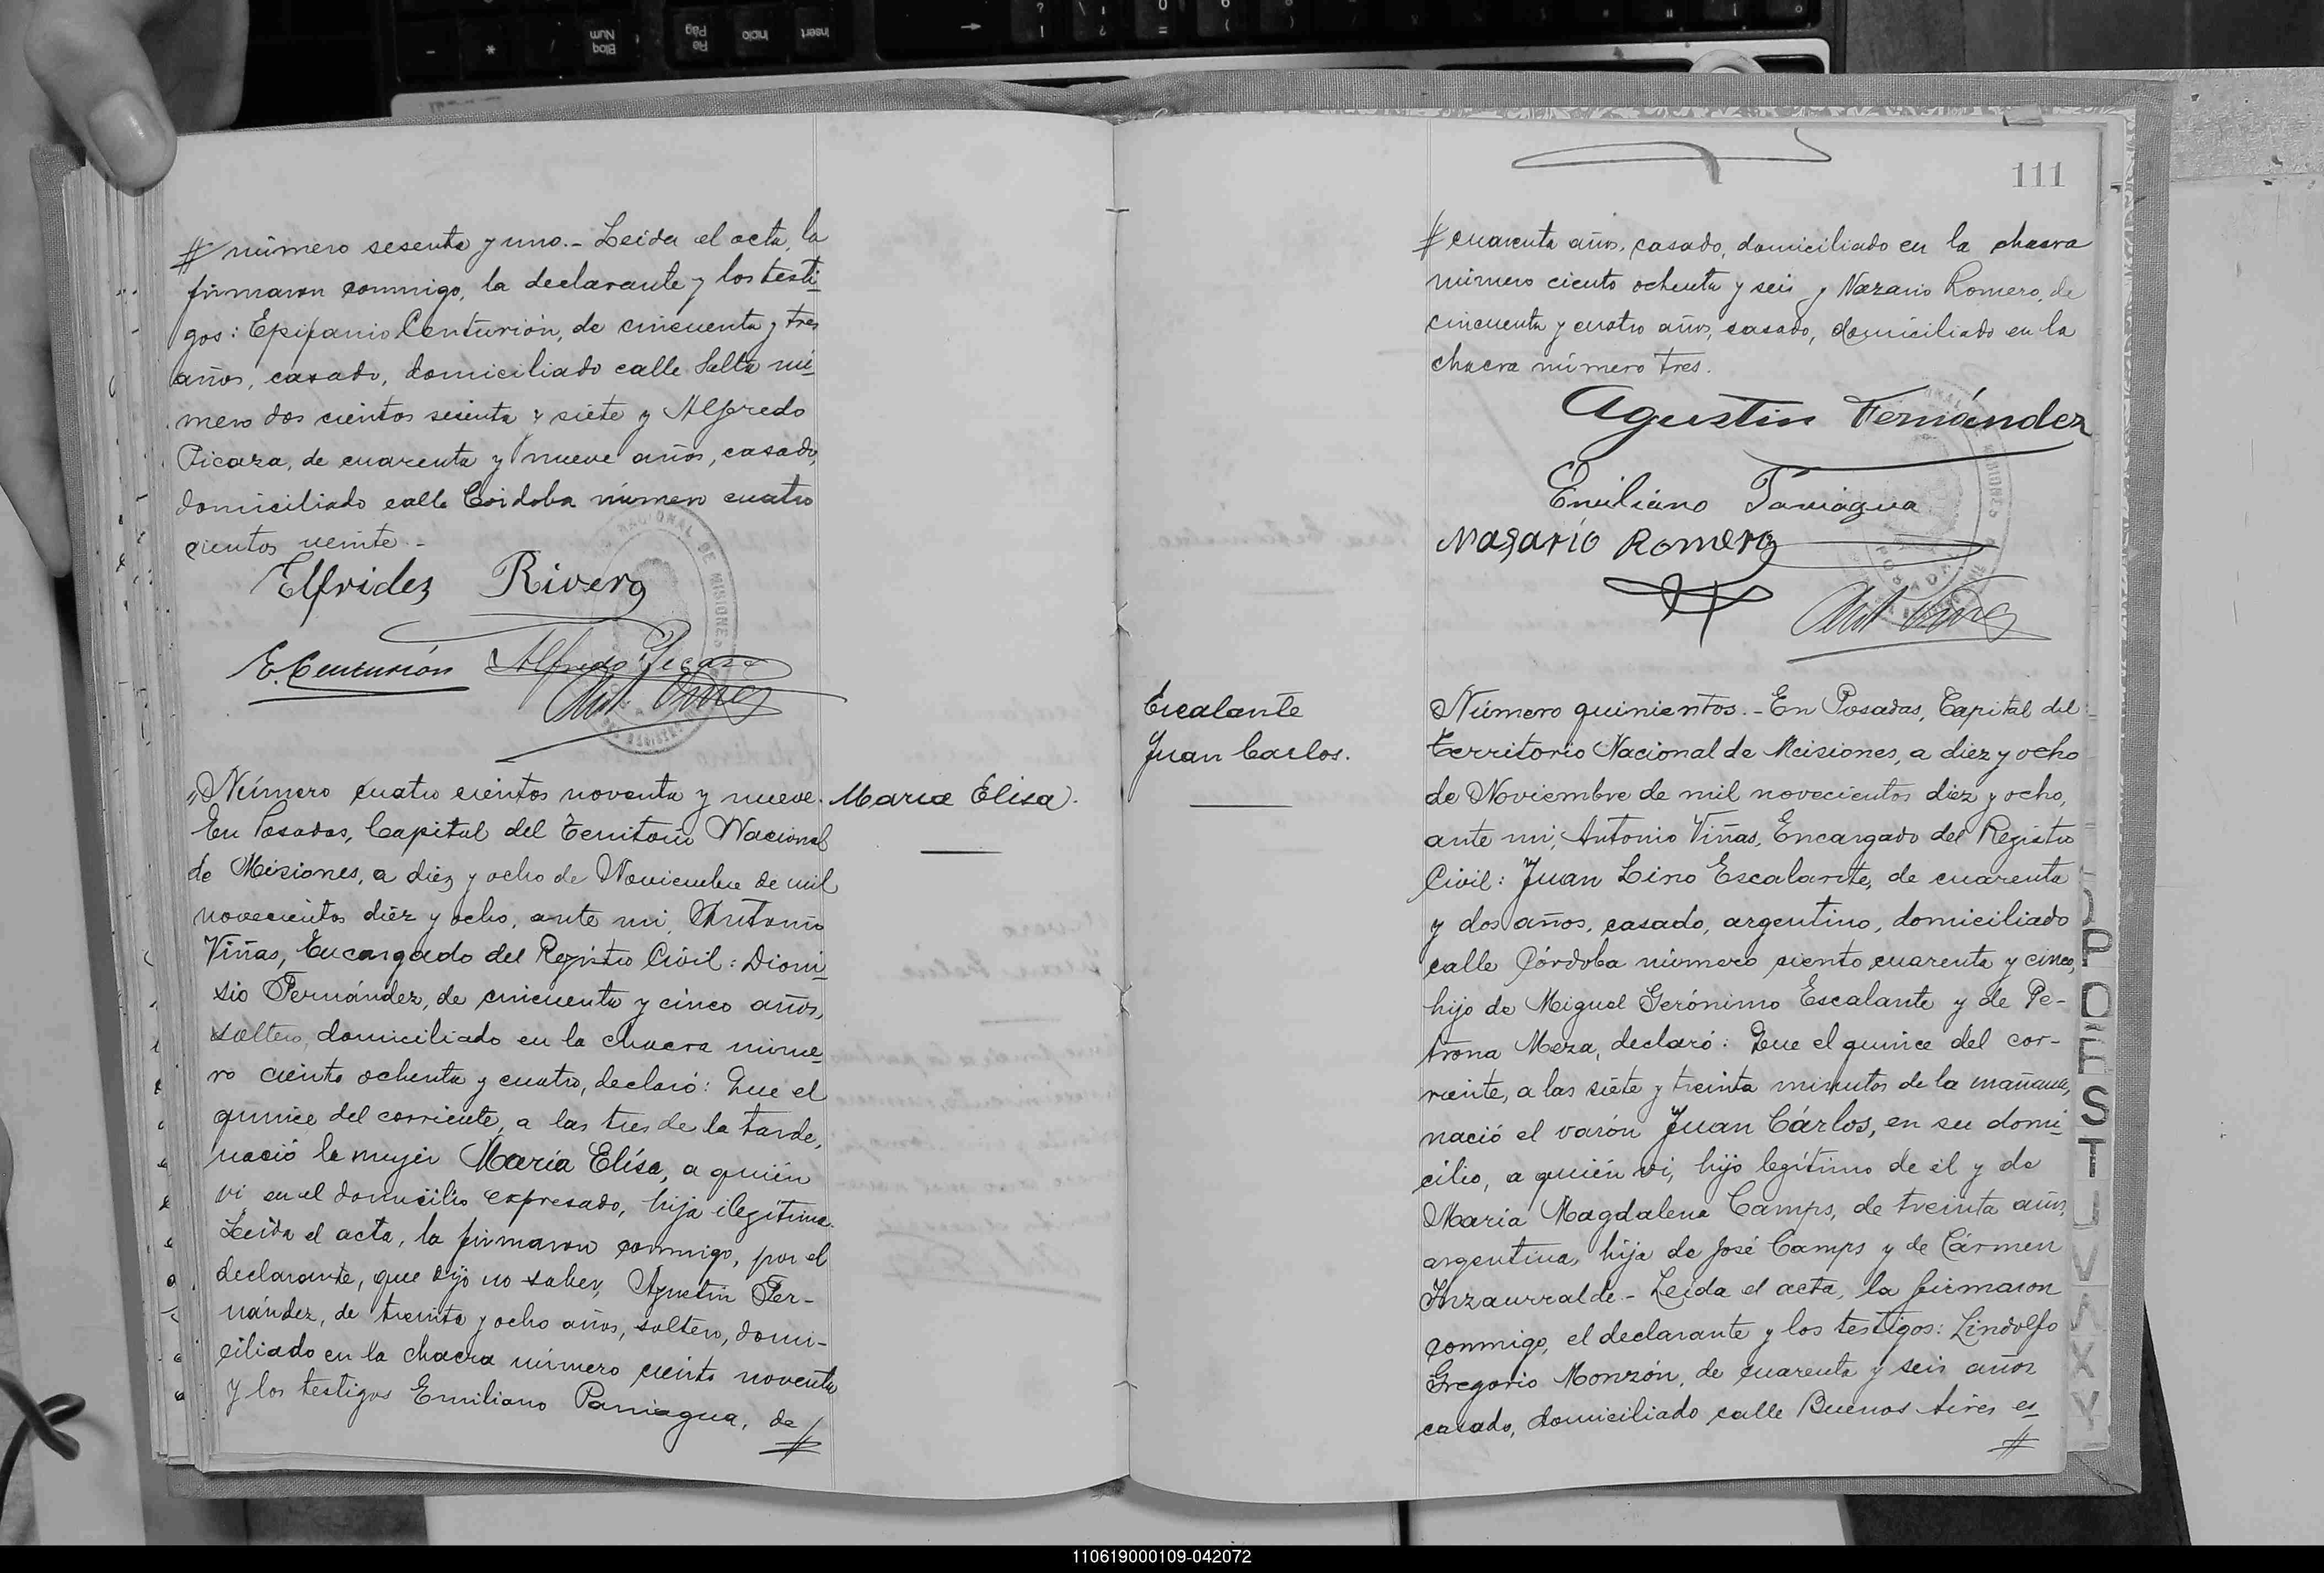 # número sesenta y uno.- Leida el acta, la
firmaron conmigo, la declarante y los testi-
gos: Epifanio Centurión, de cincuenta y tres
años, casado, domiciliado calle Salta nú-
mero dos cientos sesenta y siete y Alfredo
Picaza, de cuarenta y nueve años, casado,
domiciliado calle Córdoba número cuatro
cientos veinte.-
Elfridez Rivero
E. Centurión Alfredo Picaza
Ant. Viñas
Número cuatro cientos noventa y nueve.
En Posadas, Capital del Territorio Nacional
de Misiones, a diez y ocho de Noviembre de mil
novecientos diez y ocho, ante mi, Antonio
Viñas, Encargado del Registro Civil: Dioni-
sio Fernández, de cincuenta y cinco años,
soltero, domiciliado en la chacra núme-
ro ciento ochenta y cuatro, declaró: Que el
quince del corriente, a las tres de la tarde,
nació la mujer María Elisa, a quién
vi en el domicilio expresado, hija ilegítima.
Leida el acta, la firmaron conmigo, por el
declarante, que dijo no saber, Agustín Fer-
nández, de treinta y ocho años, soltero, domi-
ciliado en la chacra número ciento noventa
y los testigos Emiliano Paniagua, de #
Maria Elisa.
111
# cuarenta años, casado, domiciliado en la chacra
número ciento ochenta y seis y Nazario Romero, de
cincuenta y cuatro años, casado, domiciliado en la
chacra número tres.
Agustin Fernández
Emiliano Paniagua
Nasario Romero
Ant. Viñas
Escalante
Juan Carlos.
Número quinientos.- En Posadas, Capital del
Territorio Nacional de Misiones, a diez y ocho
de Noviembre de mil novecientos diez y ocho,
ante mi, Antonio Viñas, Encargado del Registro
Civil: Juan Lino Escalante, de cuarenta
y dos años, casado, argentino, domiciliado
calle Córdoba número ciento cuarenta y cinco,
hijo de Miguel Gerónimo Escalante y de Pe-
trona Meza, declaró: Que el quince del cor-
riente, a las siete y treinta minutos de la mañana,
nació el varón Juan Cárlos, en su domi-
cilio, a quién vi, hijo legítimo de él y de
María Magdalena Camps, de treinta años,
argentina, hija de José Camps y de Cármen
Inzaurralde.- Leída el acta, la firmaron
conmigo, el declarante y los testigos: Lindolfo
Gregorio Monzón, de cuarenta y seis años
casado, domiciliado calle Buenos Aires es-
#
P
S
T
V
X
Y
110619000109-042072